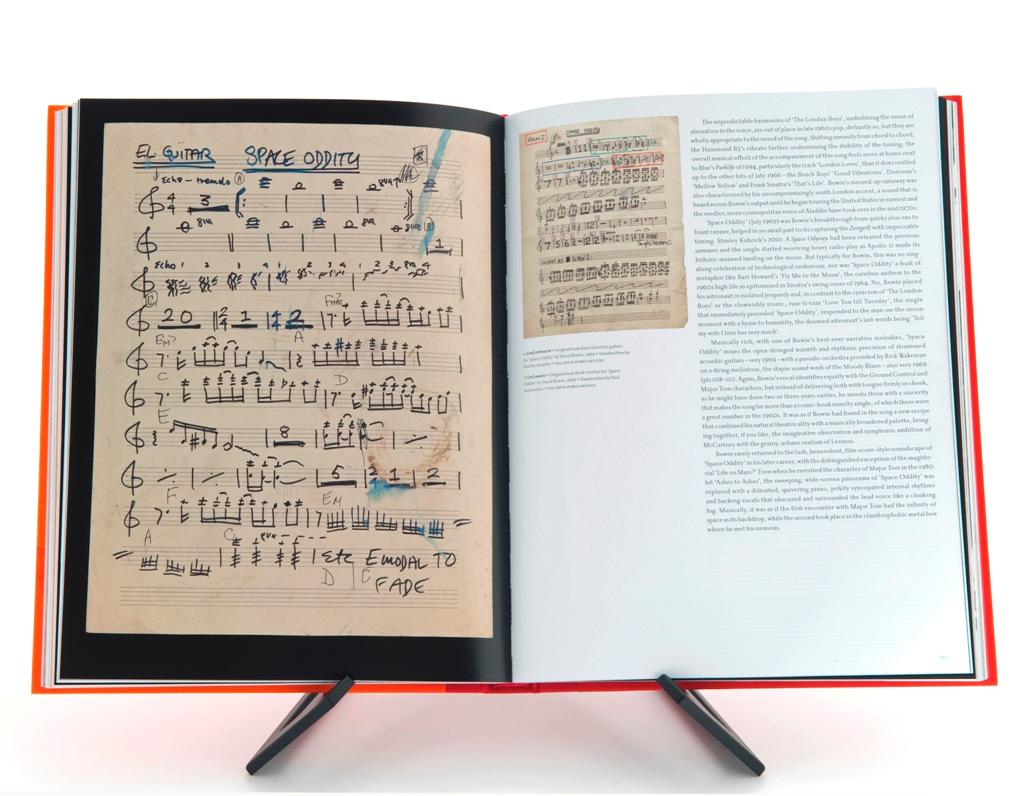 EL GUITAR SPACE ODDITY
Echo - tremolo A
4
4
3
8va
8va 8va B
1
Echo 1 2 3 4
C
20 2 1 2
4
Em7 A
C D
E
8
5 2 1 2
F Em
A C 8va
etc E MODAL TO
D E FADE
VIOLIN I SPACE ODDITY
The unpredictable harmonies of 'The London Boys', underlining the sense of
alienation in the voice, are out of place in late 1960s pop, defiantly so, but they are
wholly appropriate to the mood of the song. Shifting uneasily from chord to chord,
the Hammond B3's vibrato further undermining the stability of the tuning, the
overall musical effect of the accompaniment of this song feels more at home next
to Blur's Parklife of 1994, particularly the track 'London Loves', than it does nestled
up to the other hits of late 1966 – the Beach Boys' 'Good Vibrations', Donovan's
'Mellow Yellow' and Frank Sinatra's 'That's Life'. Bowie's messed-up runaway was
also characterized by his uncompromisingly south London accent, a sound that is
heard across Bowie's output until he began touring the United States in earnest and
the reedier, more cosmopolitan voice of Aladdin Sane took over in the mid 1970s.
'Space Oddity' (July 1969) was Bowie's breakthrough from quirky also-ran to
front runner, helped in no small part to its capturing the Zeitgeist with impeccable
timing. Stanley Kubrick's 2001: A Space Odyssey had been released the previous
summer and the single started receiving heavy radio play as Apollo 11 made its
historic manned landing on the moon. But typically for Bowie, this was no sing-
along celebration of technological endeavour, nor was 'Space Oddity' a feast of
metaphor like Bart Howard's 'Fly Me to the Moon', the carefree anthem to the
1960s high life as epitomized in Sinatra's swing cover of 1964. No, Bowie placed
his astronaut in isolated jeopardy and, in contrast to the cynicism of 'The London
Boys' or the clownishly ironic, rum-ti-tum 'Love You till Tuesday', the single
that immediately preceded 'Space Oddity', responded to the man-on-the-moon
moment with a hymn to humanity, the doomed astronaut's last words being 'Tell
my wife I love her very much'.
Musically rich, with one of Bowie's best-ever narrative melodies, 'Space
Oddity' mixes the open-stringed warmth and rhythmic precision of strummed
acoustic guitars – very 1969 – with a pseudo-orchestra provided by Rick Wakeman
on a string mellotron, the staple sound wash of the Moody Blues – also very 1969
(pls 108–10). Again, Bowie's vocal identifies equally with the Ground Control and
Major Tom characters, but instead of delivering both with tongue firmly in cheek,
as he might have done two or three years earlier, he invests them with a sincerity
that makes the song far more than a comic-book novelty single, of which there were
a great number in the 1960s. It was as if Bowie had found in the song a new recipe
that combined his natural theatricality with a musically broadened palette, bring-
ing together, if you like, the imaginative observation and symphonic ambition of
McCartney with the grainy, urbane realism of Lennon.
Bowie rarely returned to the lush, benevolent, film-score-style soundscape of
'Space Oddity' in his later career, with the distinguished exception of the magiste-
rial 'Life on Mars?' Even when he revisited the character of Major Tom in the 1980
hit 'Ashes to Ashes', the sweeping, wide-screen panorama of 'Space Oddity' was
replaced with a distorted, quivering piano, jerkily syncopated internal rhythms
and backing vocals that obscured and surrounded the lead voice like a cloaking
fog. Musically, it was as if the first encounter with Major Tom had the infinity of
space as its backdrop, while the second took place in the claustrophobic metal box
where he met his nemesis.
Original lead sheet (electric guitar)
for 'Space Oddity' by David Bowie, 1969 • Handwritten by
Paul Buckmaster • THE DAVID BOWIE ARCHIVE
Original lead sheet (violin) for 'Space
Oddity' by David Bowie, 1969 • Handwritten by Paul
Buckmaster • THE DAVID BOWIE ARCHIVE